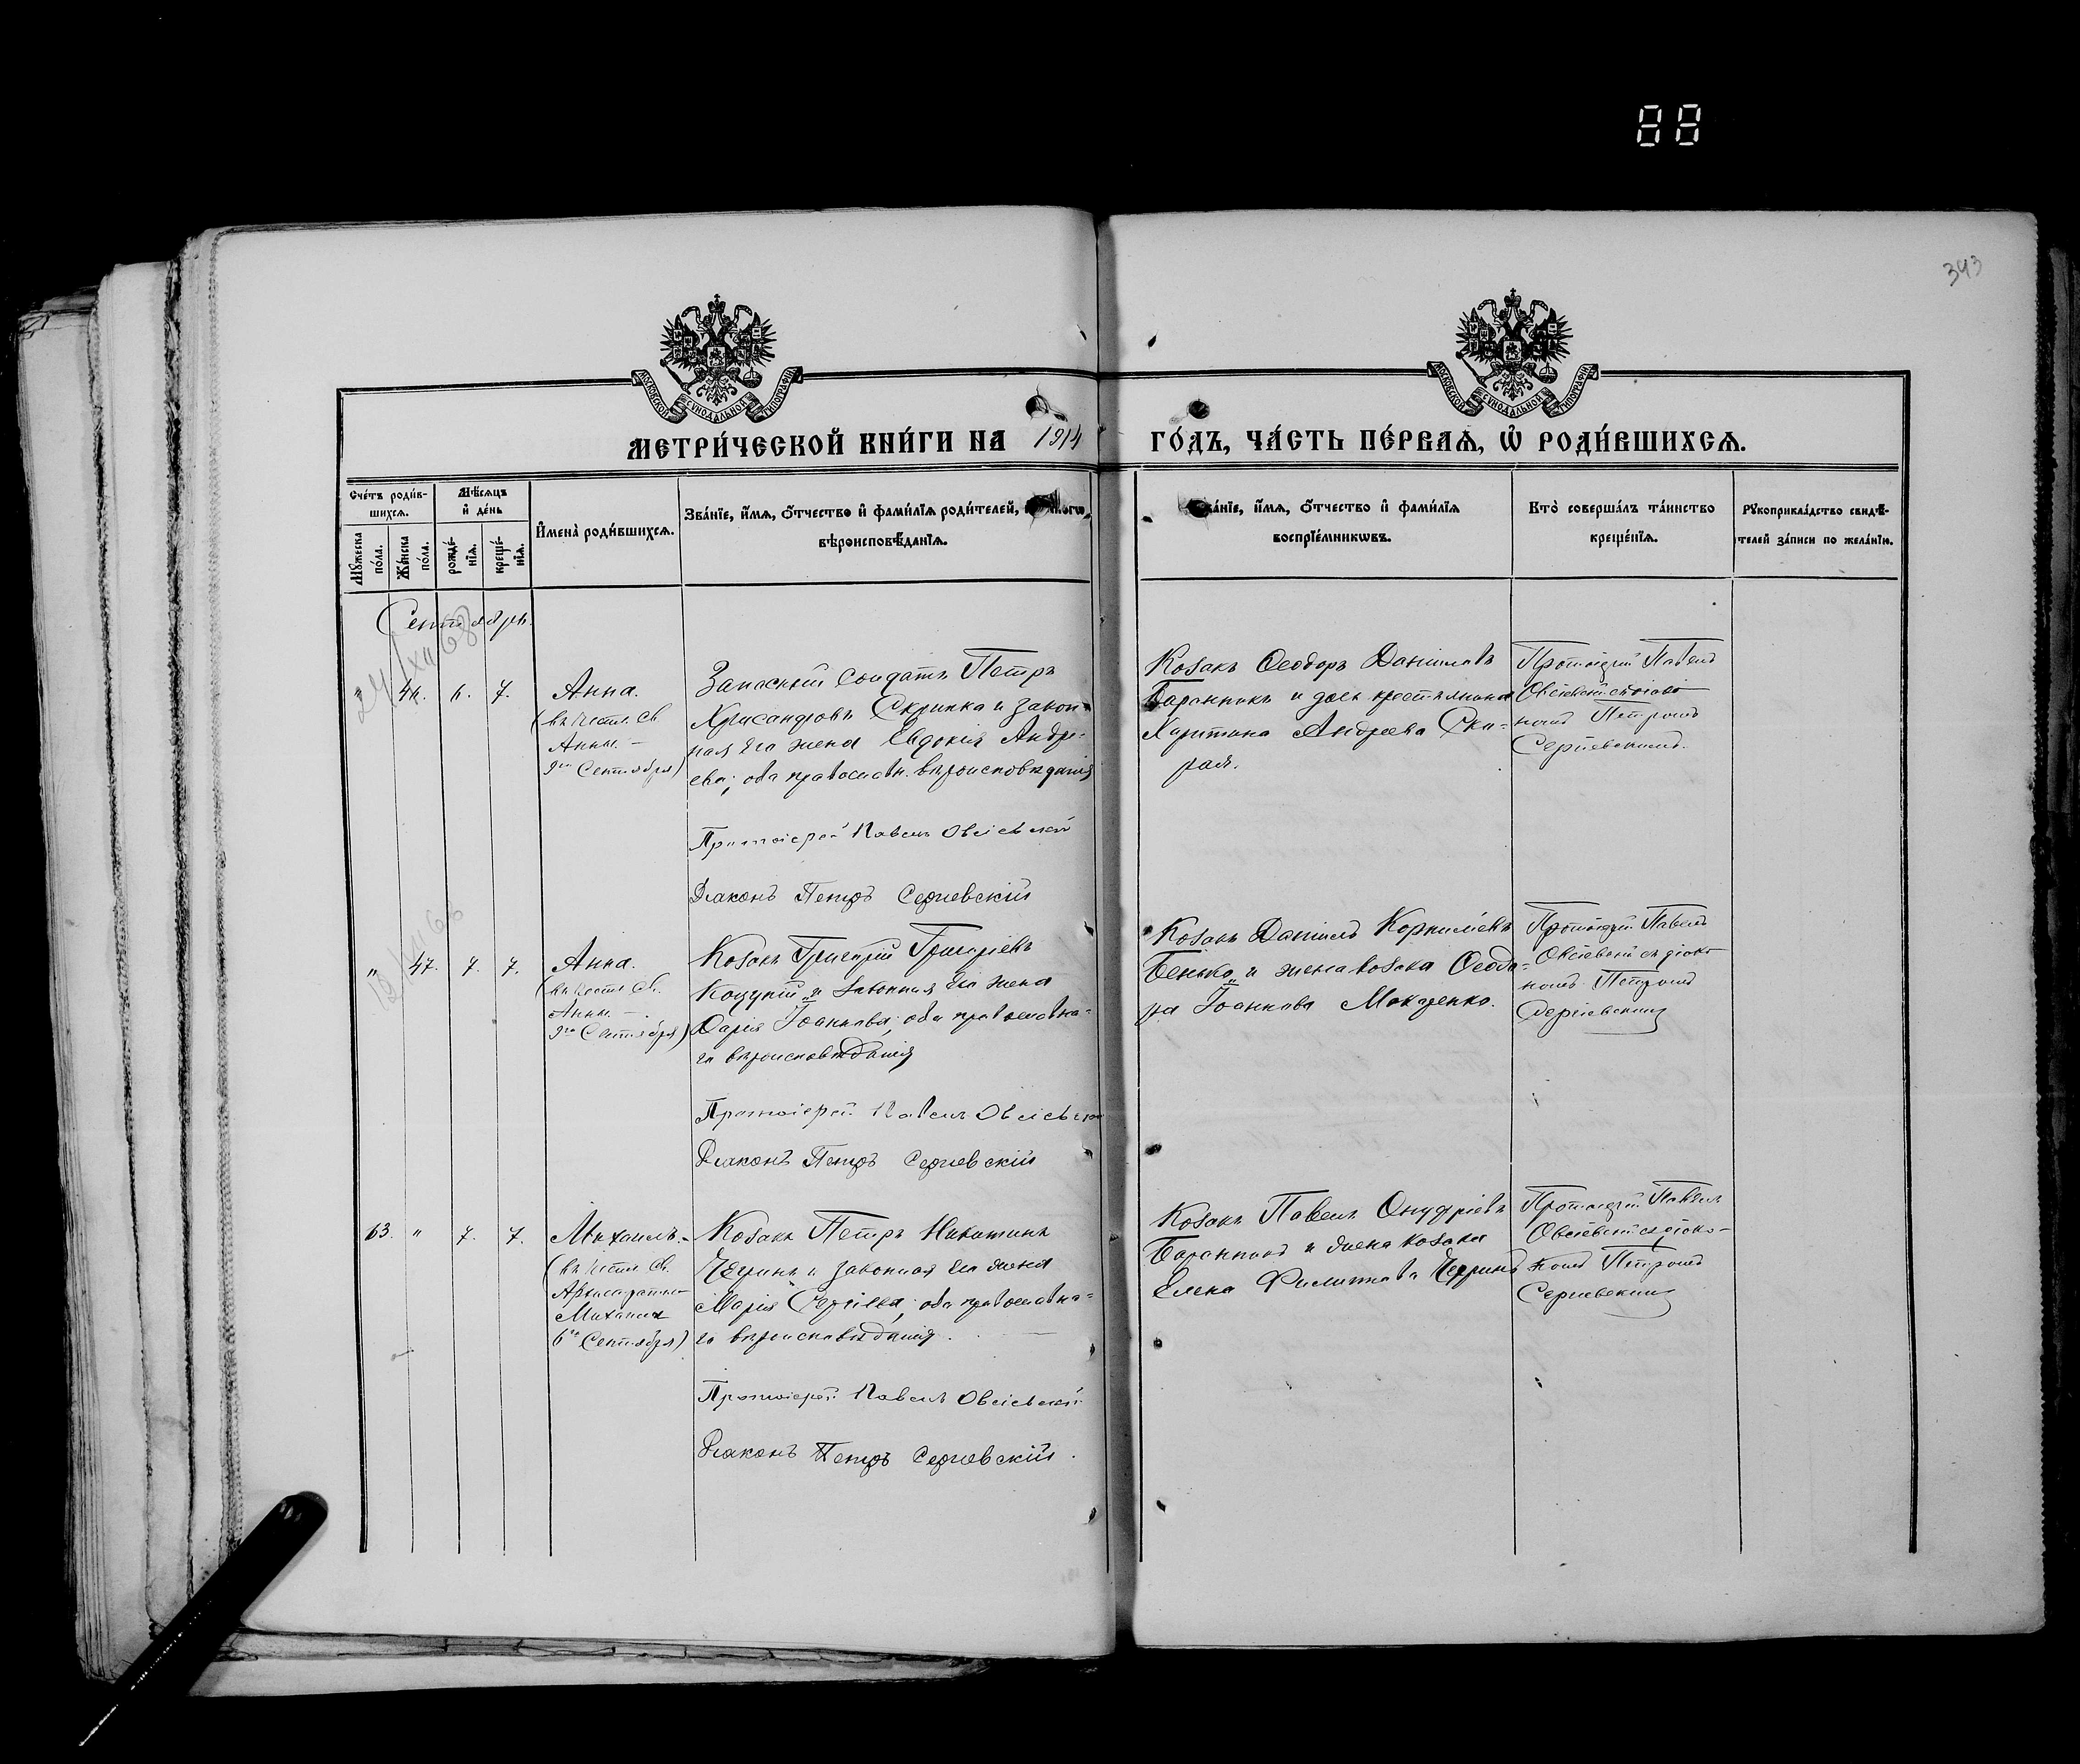 88
393
МОСКОВСКОЙ СѴНОДАЛЬНОЙ ТИПОГРАФІИ
МОСКОВСКОЙ СѴНОДАЛЬНОЙ ТИПОГРАФІИ
МЕТРИ́ЧЕСКОЙ КНИ́ГИ НА 1914 ГО́ДЪ, ЧА́СТЬ ПЕ́РВАѦ, Ѡ҆ РОДИ́ВШИХСѦ.
Сче́тъ роди́в-
шихсѧ.
Мꙋ́жеска по́ла.
Же́нска по́ла.
Мѣ́сѧцъ
и҆ де́нь
рожде́-
нїѧ.
креще́-
нїѧ.
И҆мена̀ роди́вшихсѧ.
Зва́нїе, и҆́мѧ, ѻ҆́тчество и҆ фами́лїѧ роди́телей,
вѣроисповѣ́данїѧ.
и҆́мѧ, ѻ҆́тчество и҆ фами́лїѧ
воспрїе́мникѡвъ.
Кто̀ соверша́лъ та́инство
креще́нїѧ.
Рꙋкоприкла́дство свидѣ́-
телей за́писи по жела́нїю.
Сентябрь.
6. 7.
Анна.
Св.
Анны. –
9го Сентября)
Запасный солдатъ Петръ
Хрисанфовъ Скрипка и закон-
ная его жена Евдокія Андре-
ева; оба православн. вѣроисповѣданія
Протоіерей Павелъ Овсіевскій
Діаконъ Петръ Сергіевскій
Козакъ Ѳеодоръ Даніиловъ
Баранникъ и дочь крестьянина
Харитина Андреева Ски-
Протоіерей Павелъ
Овсіевскій съ діако-
номъ Петромъ
Сергіевскимъ.
" 47. 7. 7.
Анна.
Св.
Анны. –
9го Сентября)
Козакъ Григорій Григоріевъ
Коцупій и законная его жена
Дарія Іоаннова; оба православна-
го вѣроисповѣданія
Протоіерей Павелъ Овсіевскій
Діаконъ Петръ Сергіевскій
Козакъ Даніилъ Корниліевъ
Бенько и жена козака Ѳеодо-
ра Іоаннова Макаренко.
Протоіерей Павелъ
Овсіевскій съ діако-
номъ Петромъ
Сергіевскимъ
63. " 7. 7.
Михаилъ. –
Св.
Архистратига
Михаила
6го Сентября)
Козакъ Петръ Никитинъ
и законная его жена
Марія Сергіева; оба православна-
го вѣроисповѣданія. –
Протоіерей Павелъ Овсіевскій
Діаконъ Петръ Сергіевскій.
Козакъ Павелъ Онуфріевъ
и жена козака
Елена Филиппова
Протоіерей Павелъ
Овсіевскій съ діако-
номъ Петромъ
Сергіевскимъ